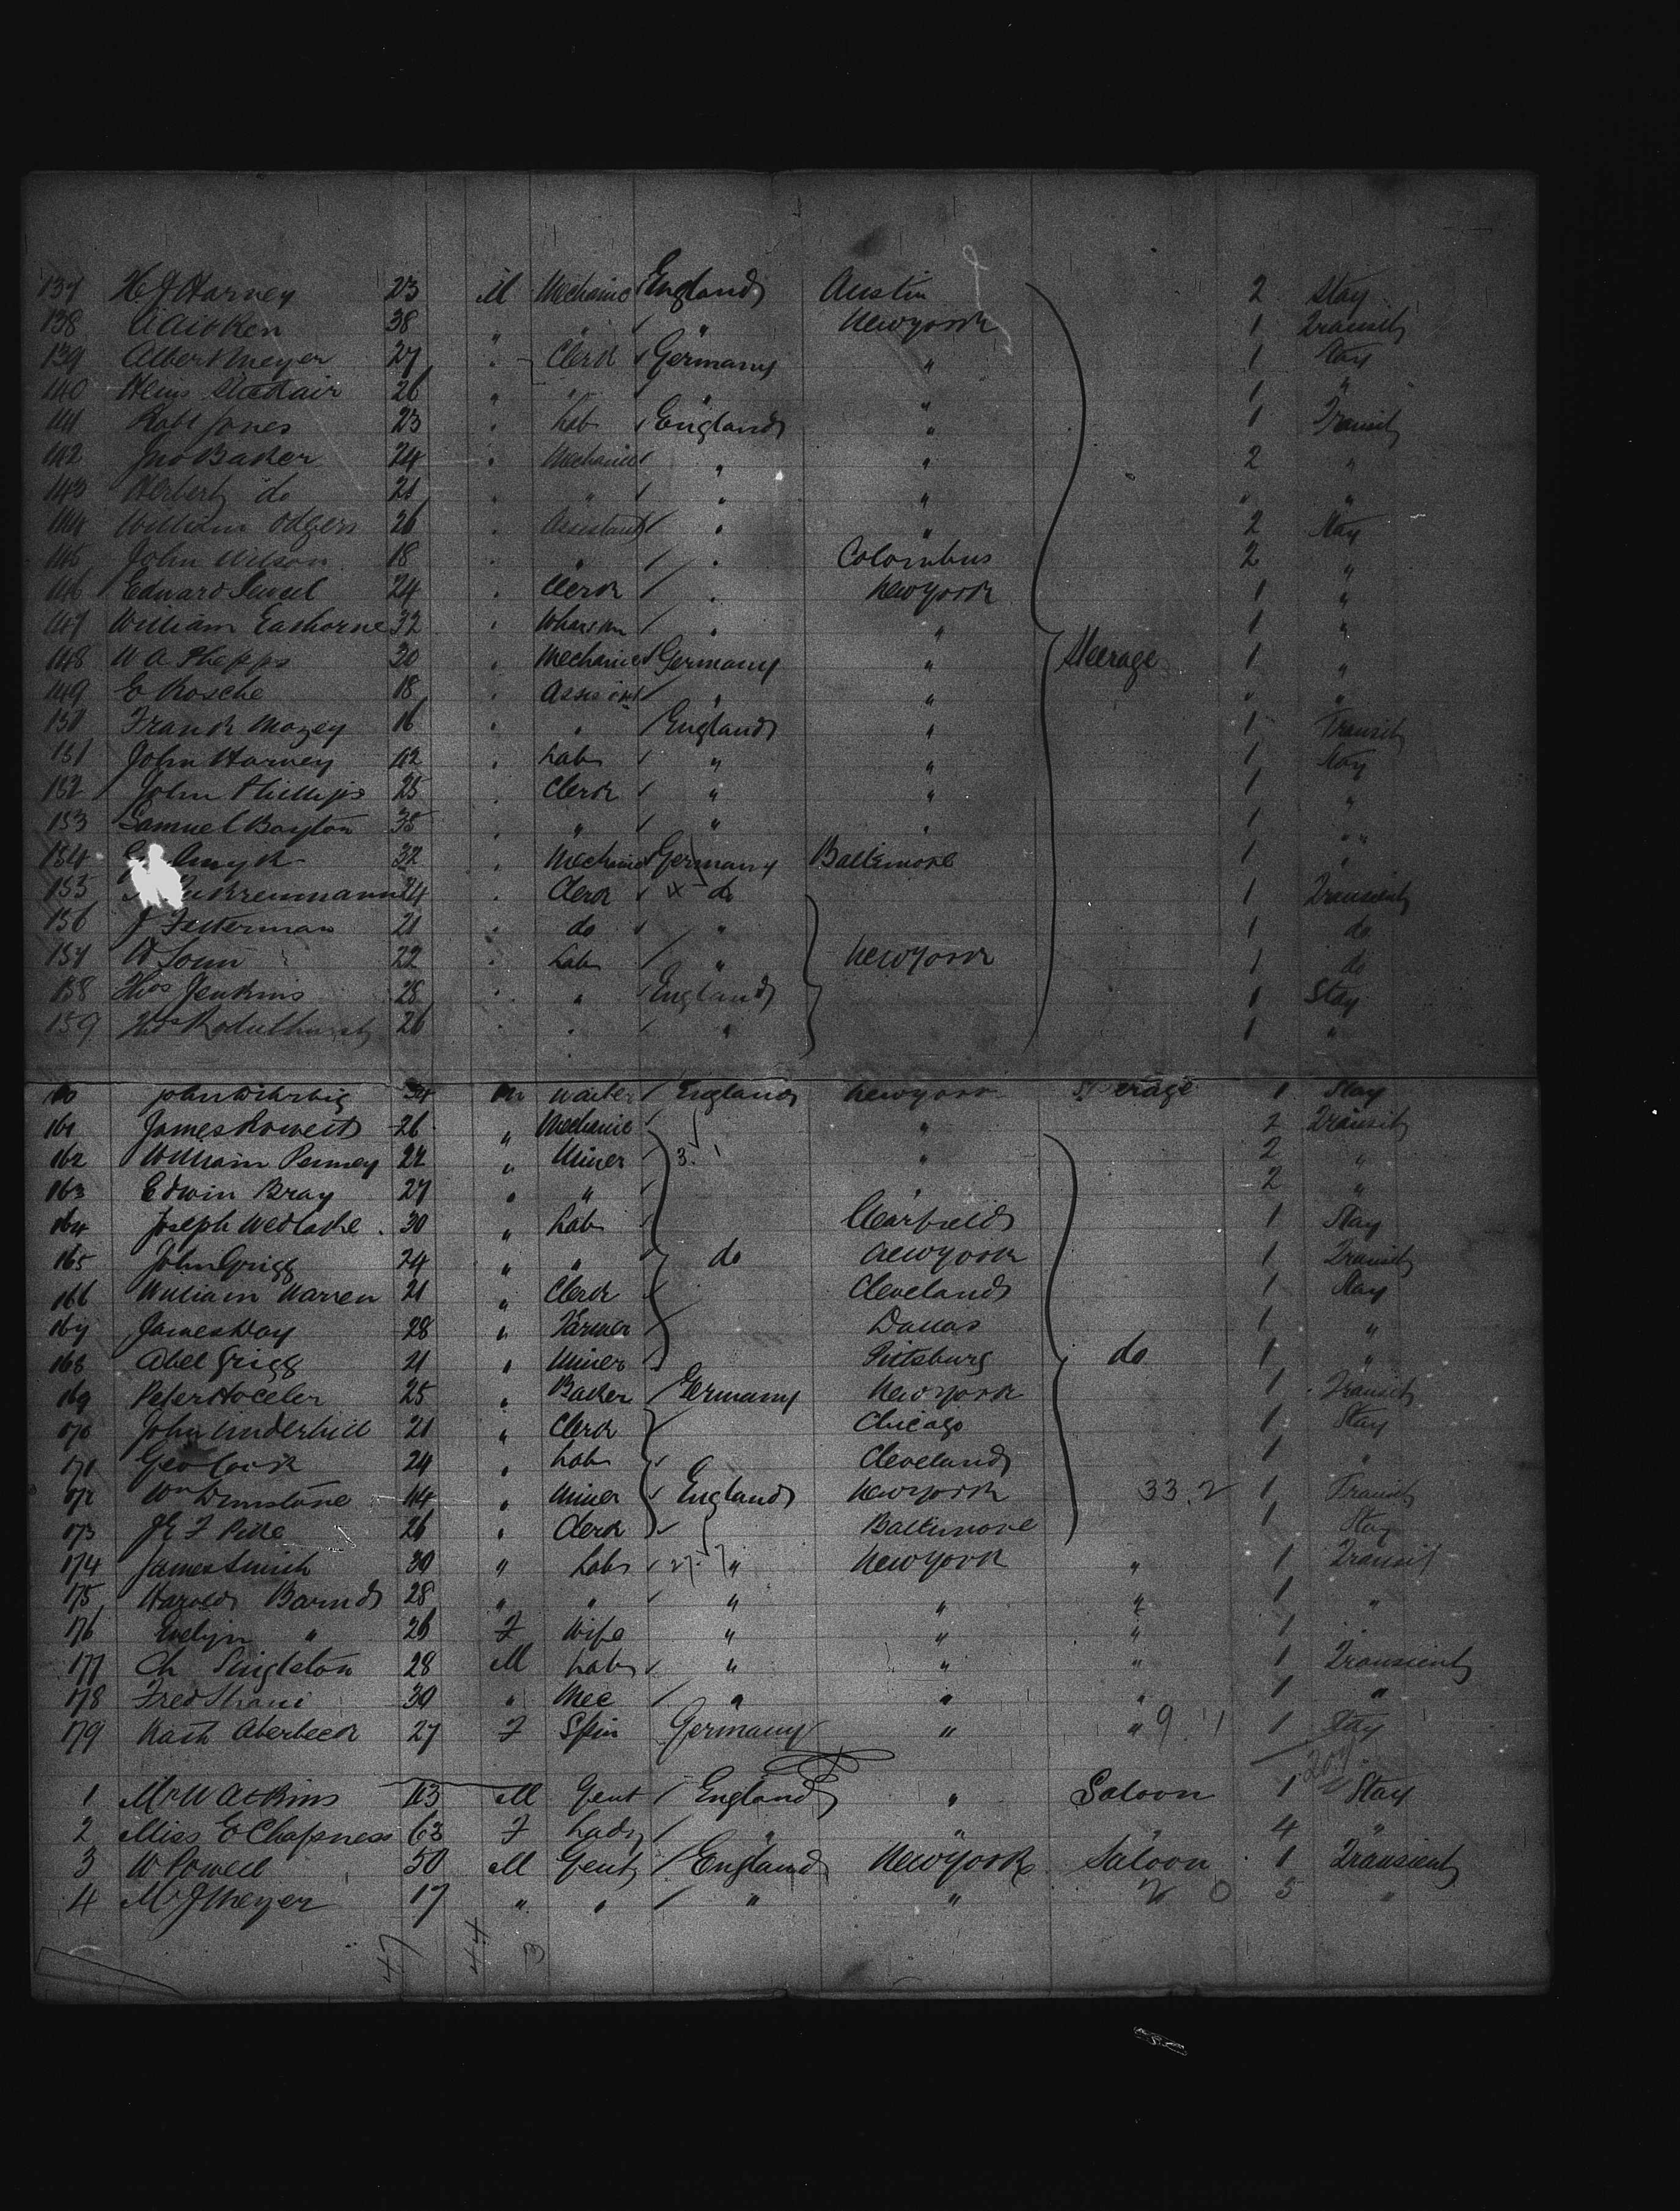 137 H J Harvey 23 M Mechanic England Austin 2 Stay
138 A Aitken 38 " " " New York 1 Transit
139 Albert Meyer 27 " Clerk Germany " 1 Stay
140 Sinclair 26 " " " " 1 "
141 Robt Jones 23 " Lab England " 1 Transit
142 Jno Baker 24 " Mechanic " " 2 "
143 Herbert do 21 " " " " " "
144 William Odgers 26 " Assistant " " 2 Stay
145 John Wilson 18 " " " Colombus 2 "
146 Edward Sewell 24 " Clerk " New York 1 "
147 William Eathorne 32 " " " 1 "
148 W A Phepps 30 " Mechanic Germany " Steerage 1 "
149 E Rosche 18 " Assist " " " "
150 Frank Mozey 16 " " England " 1 Transit
151 John Harvey 42 " Lab " " 1 Stay
152 John Phillips 25 " Clerk " " 1 "
153 Samuel Boyton 35 " " " " 1 "
154 32 " Mechanic Germany Baltimore 1 "
155 24 " Clerk x do 1 Transient
156 J Fetterman 21 " do " 1 do
157 22 " Lab " New York 1 do
158 Thos Jenkins 28 " " England 1 Stay
159 26 " " " 1 "
160 John 34 M Waiter England New York Steerage 1 Stay
161 James 26 " Mechanic " 2 Transit
162 William Penney 22 " Miner 3.1 " 2 "
163 Edwin Bray 27 " " " 2 "
164 Joseph Wedlake 30 " Lab Clearfield 1 Stay
165 John Grigg 24 " " do New York 1 Transit
166 William Warren 21 " Clerk Cleveland 1 Stay
167 James Day 28 " Farmer Dallas 1 "
168 Abel Grigg 21 " Miner Pittsburg do 1 "
169 Peter Hoceler 25 " Baker Germany New York 1 Transit
170 John Underhill 21 " Clerk Chicago 1 Stay
171 Geo Cook 24 " Lab Cleveland 1 "
172 Wm Dunstone 44 " Miner England New York 33.2 1 Transit
173 26 " Clerk Baltimore 1 Stay
174 James Smith 30 " Lab " New York " 1 Transit
175 Harold Barnds 28 " " " " " 1 "
176 Evelyn " 26 F Wife " " " 1 "
177 Ch Singleton 28 M Lab " " " 1 Transient
178 Fred 30 " Mec " " " 1 "
179 Kath Aberbeck 27 F Spin Germany " " 9.1 1 Stay
1 Mr W Atkins 43 M Gent England " Saloon 1 Stay
2 Miss E Chapness 63 F Lady " " " 4 "
3 W Powell 50 M Gent England New York Saloon 1 Transient
4 M J Meyer 17 " " " " 2 0 5 "
47 44 3